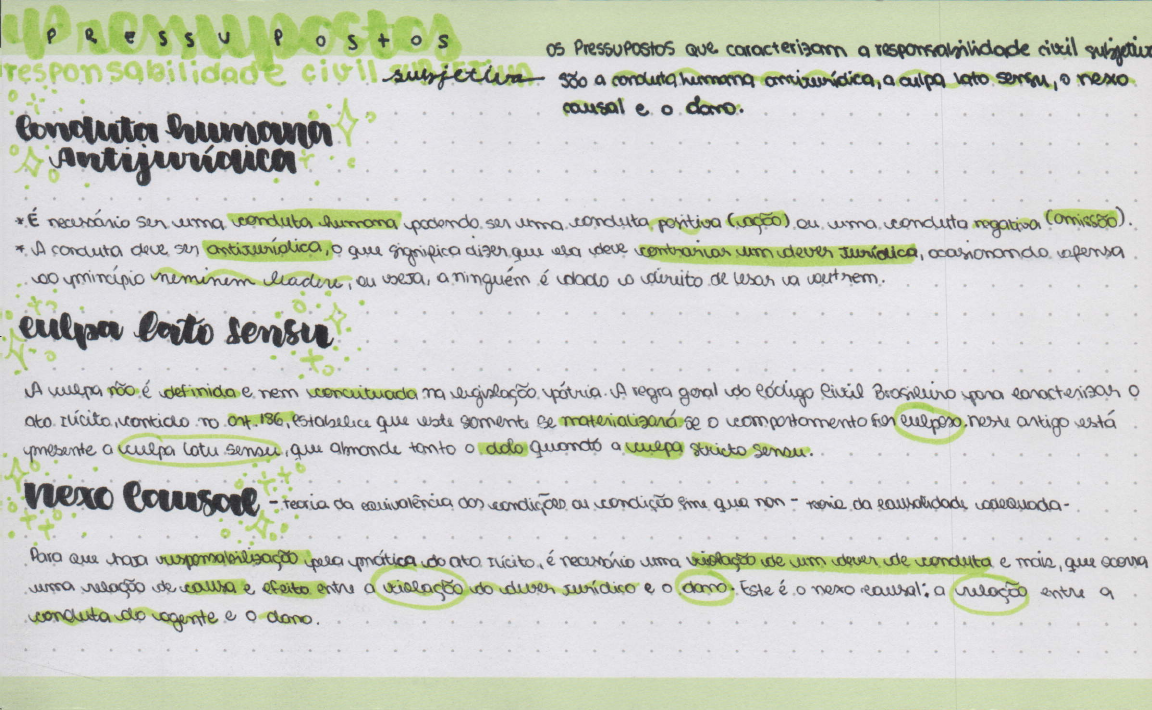 PRESSUPOSTOS
responsabilidade civil subjetiva
os Pressupostos que caracterizam a responsabilidade civil subjetiva
são a conduta humana antijurídica, a culpa lato sensu, o nexo
causal e o dano.
Conduta humana
Antijurídica
* É necessário ser uma conduta humana podendo ser uma conduta positiva (ação) ou uma conduta negativa (omissão).
* A conduta deve ser antijurídica, o que significa dizer que ela deve contrariar um dever jurídico, ocasionando ofensa
ao princípio neminem leadere, ou seja, a ninguém é dado o direito de lesar a outrem.
culpa lato sensu
A culpa não é definida e nem conceituada na legislação pátria. A regra geral do Código Civil Brasileiro para caracterizar o
ato ilícito, contido no art. 186, estabelece que este somente se materializará se o comportamento for culposo. neste artigo está
presente a culpa latu sensu, que abrande tanto o dolo quando a culpa stricto sensu.
nexo causal - teoria da equivalência das condições ou condição sine qua non - teoria da causalidade adequada -
Para que haja responsabilização pela prática do ato ilícito, é necessário uma violação de um dever de conduta e mais, que ocorra
uma relação de causa e efeito entre a violação do dever jurídico e o dano. Este é o nexo causal: a relação entre a
conduta do agente e o dano.